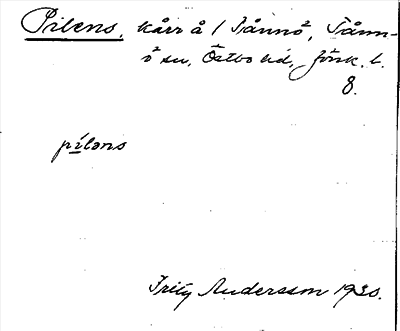 Pilens, kärr å 1 Tånnö, Tånn-
ö sn, Östbo hd, Jönk. l.
8.
pìləns
Fritz Andersson 1930.